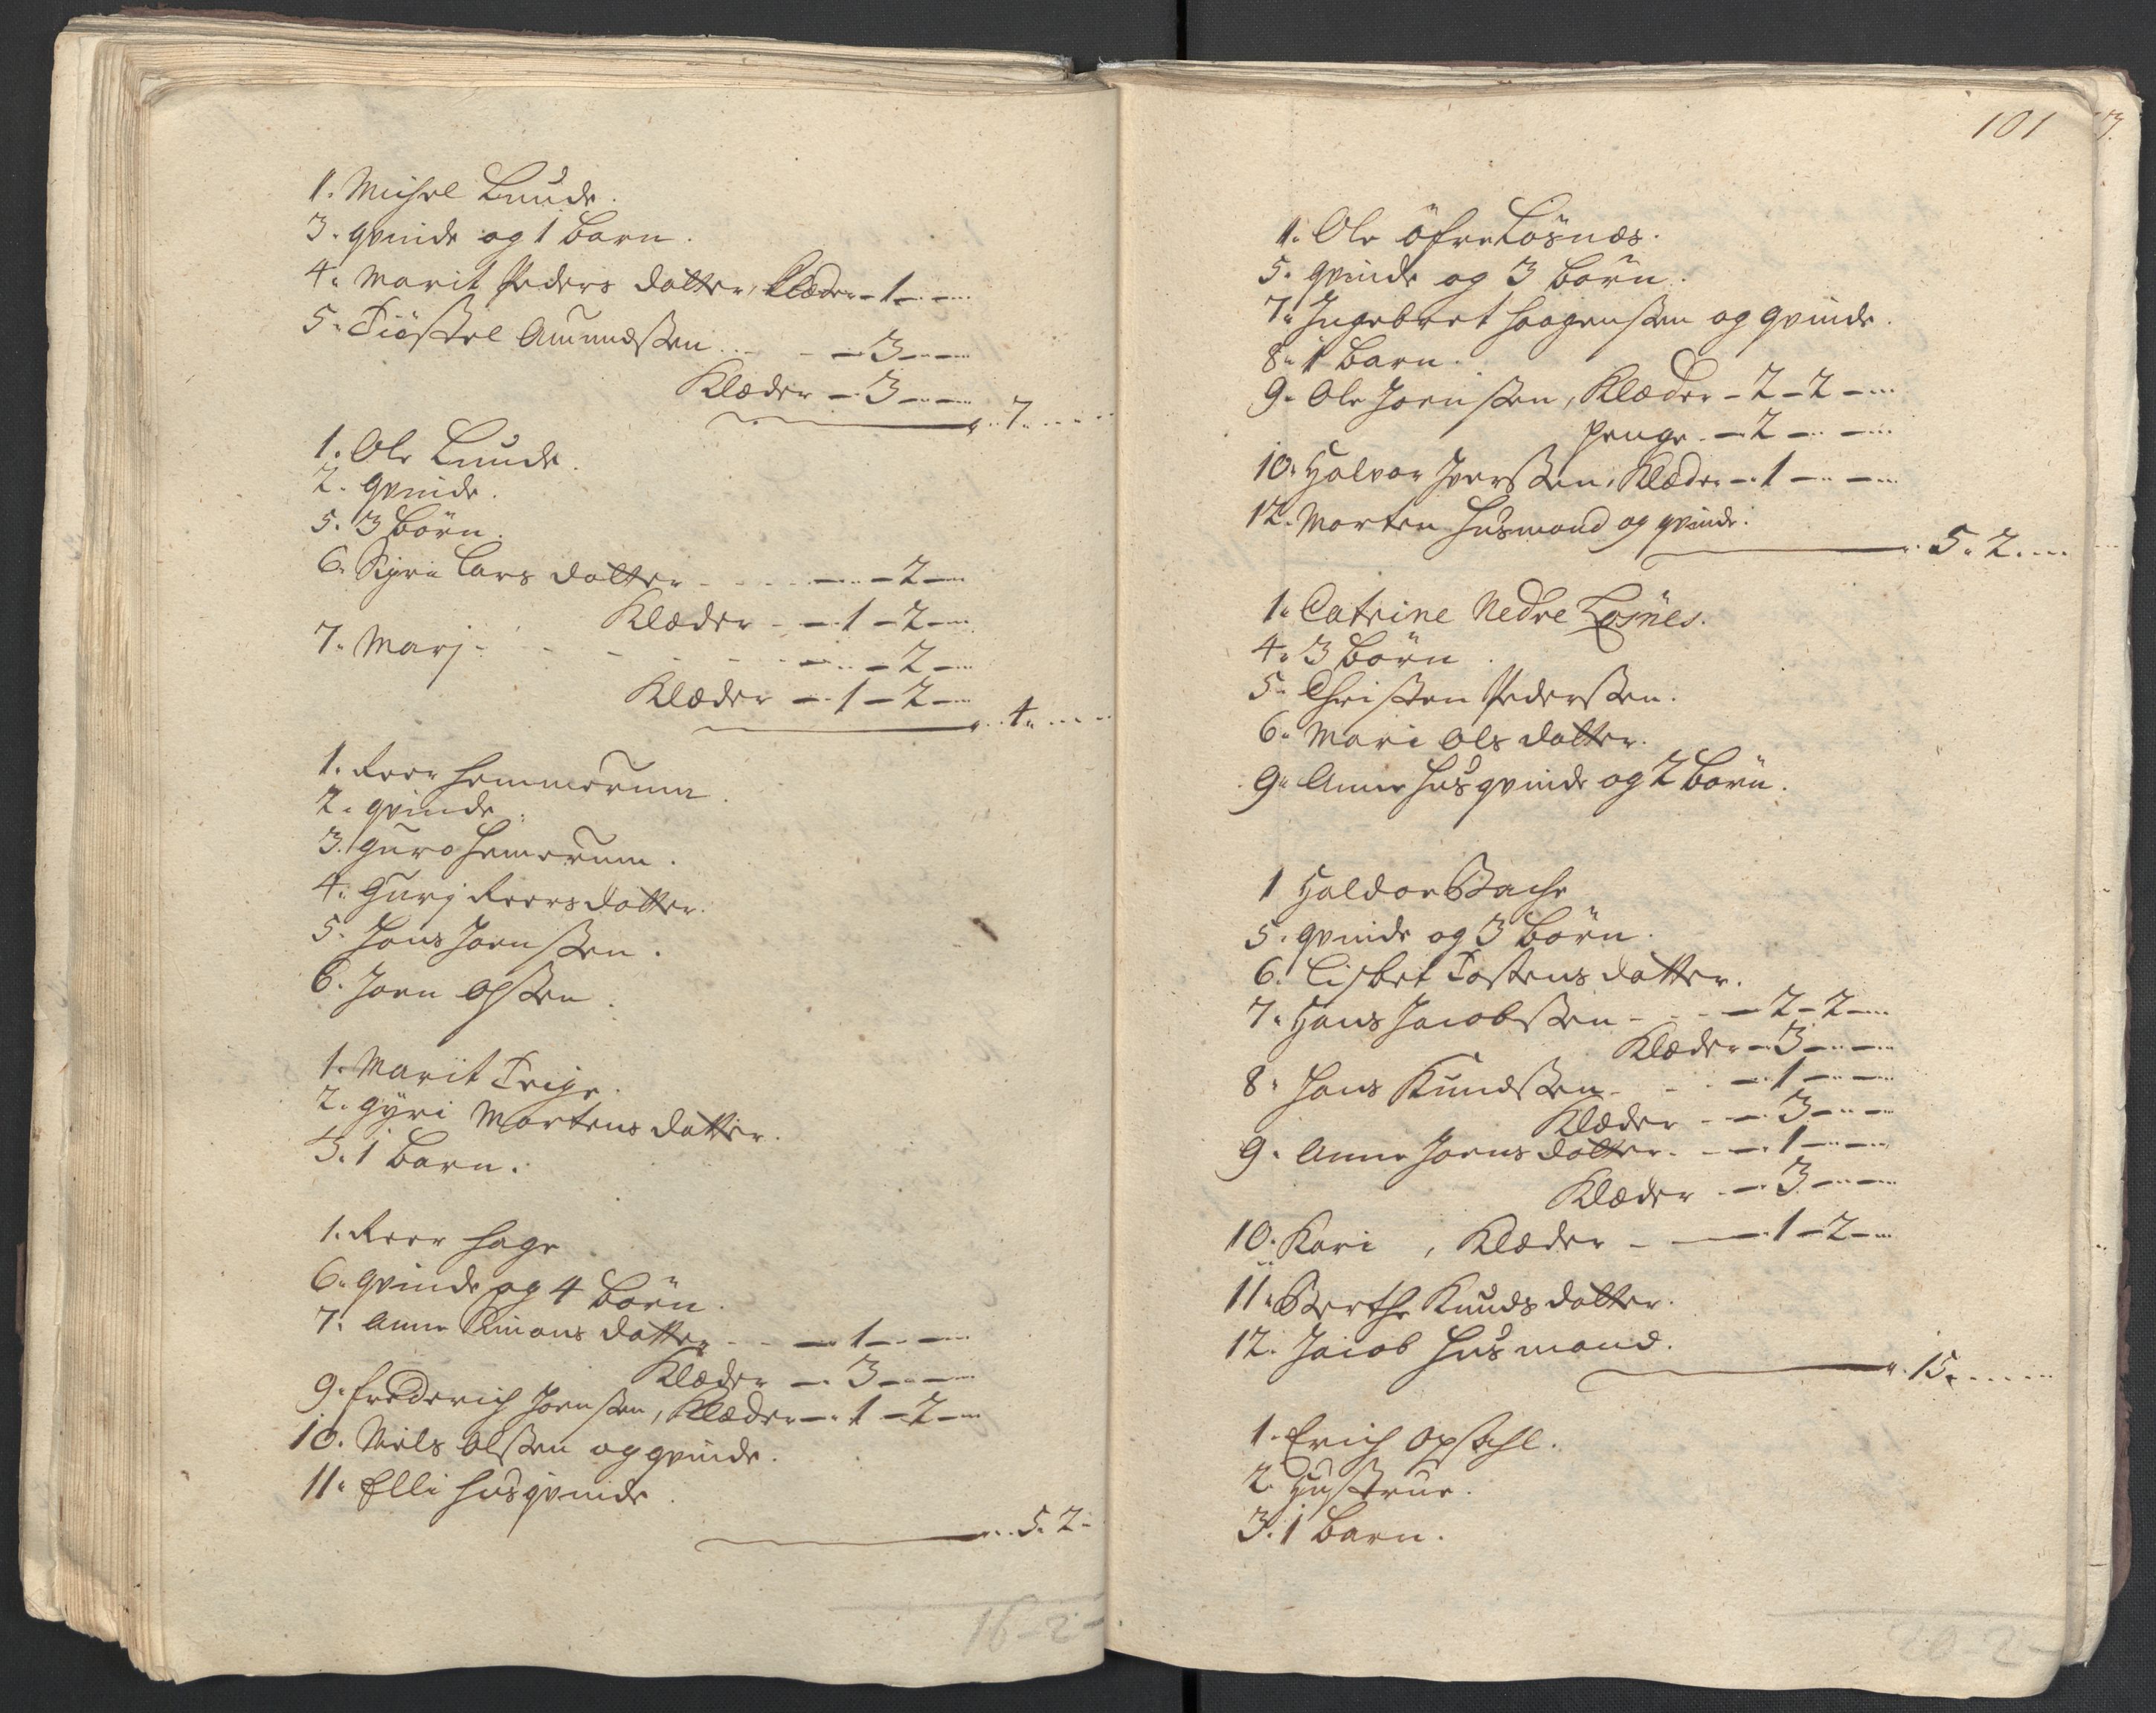 1. Michel Lunde.
3. qvinde og 1 Barn.
4. Marit Peders datter, Klæder - 1 -
5. Tiöstel Amundssen - 3 -
Klæder - 3 -
7.
1. Ole Lunde.
2. qvinde.
5. 3 Börn.
6. Kyri Lars datter - 2 -
Klæder - 1 - 2 -
7. Marj - 2 -
Klæder - 1 - 2 -
4.
1. Reer Hemmerum.
2. qvinde.
3. Guro Hemerum.
4. Gurj Reersdatter.
5. Hans Joenssen.
6. Joen Olssen.
1. Marit Teige.
2. Gyri Mortens datter.
3. 1 Barn.
1. Reer Hage
6. qvinde og 4 Börn.
7. Anne Simons datter - 1 -
Klæder - 3 -
9. Frederich Joenssen, Klæder - 1 - 2 -
10. Niels Olssen og qvinde.
11. Elli Husqvinde.
5. 2 -
16 - 2 -
101
1. Ole Öfre Lösnæs.
5. qvinde og 3 Börn.
7. Ingebret Haagenssen og qvinde.
8. 1 Barn.
9. Ole Joenssen, Klæder - 2 - 2 -
penge - 2 -
10. Halvor Iverssen, Klæder - 1 -
12. Morten Husmand og qvinde.
5. 2.
1. Catrine Nedre Losnes.
4. 3 Börn.
5. Christen Pederssen.
6. Mari Ols datter.
9. Anne Husqvinde og 2 Börn.
1 Haldor Bache
5. qvinde og 3 Börn.
6. Lisbet Tostens datter.
7. Hans Jacobssen - 2 - 2 -
Klæder - 3 -
8. Hans Knudssen - 1 -
Klæder - 3 -
9. Anne Joens datter - 1 -
Klæder - 3 -
10. Kari, Klæder - 1 - 2 -
11. Berthe Knuds datter.
12. Jacob Husmand.
15.
1. Erich Opsahl.
2. Hustrue.
3. 1 Barn.
20 - 2 -